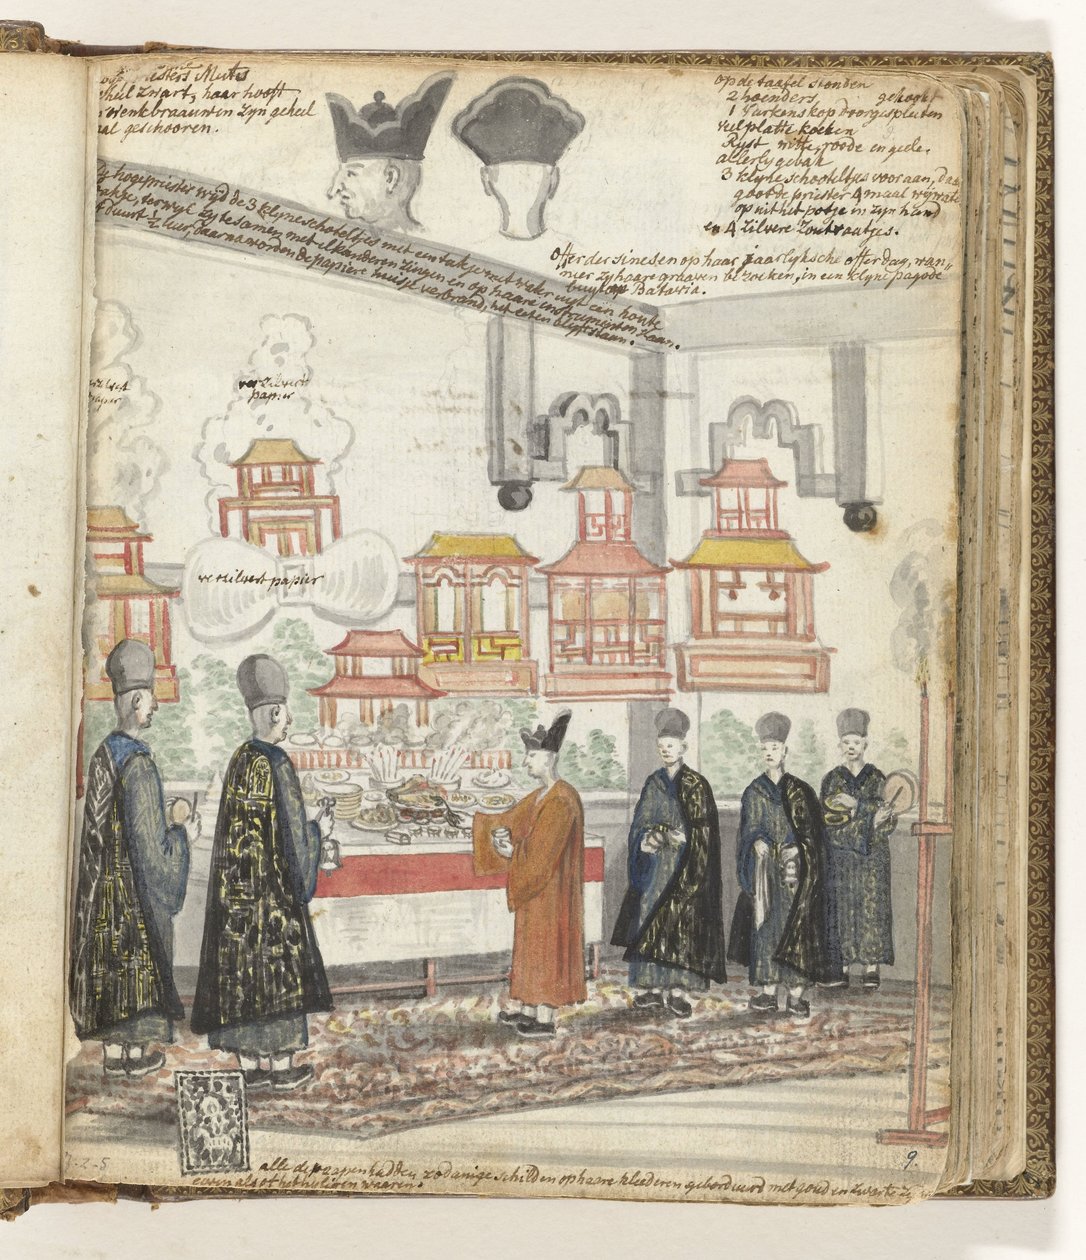 priesters Muts
heel zwart, haar hooft
wenkbraauwen zyn geheel
kaal geschooren.
op de taafel stonden
2 hoenders gekookt
1 Varkens kop doorgespleeten
veel platte koeken
Ryst witte, roode en geele.
allerly gebak
3 klyne schooteltjes vooraan, daar
goot de priester 4 maal wijwater
op uit het potje in zyn hand
en 4 zilvere Zoutvaatjes.
De hogepriester wyd de 3 klyne schoteltjes met een takje met
takje, terwyl zy te samen met elkanderen zingen en op haare instrumenten slaan.
duurt ½ uur, daar na worden de papiere huisje verbrand, het eeten blyft staan.
Offer der sineesen op haar jaarlyksche offerdag, wan„
neer zy haare graaven bezoeken, in een klyne pagode
buyten Batavia.
verzilvert
papier
verzilvert
papier
verzilvert papier
7-2-5
9.
alle de papen hadden zodanige schilden op haare kleederen geborduurd met goud en zwarte zy
even als of het